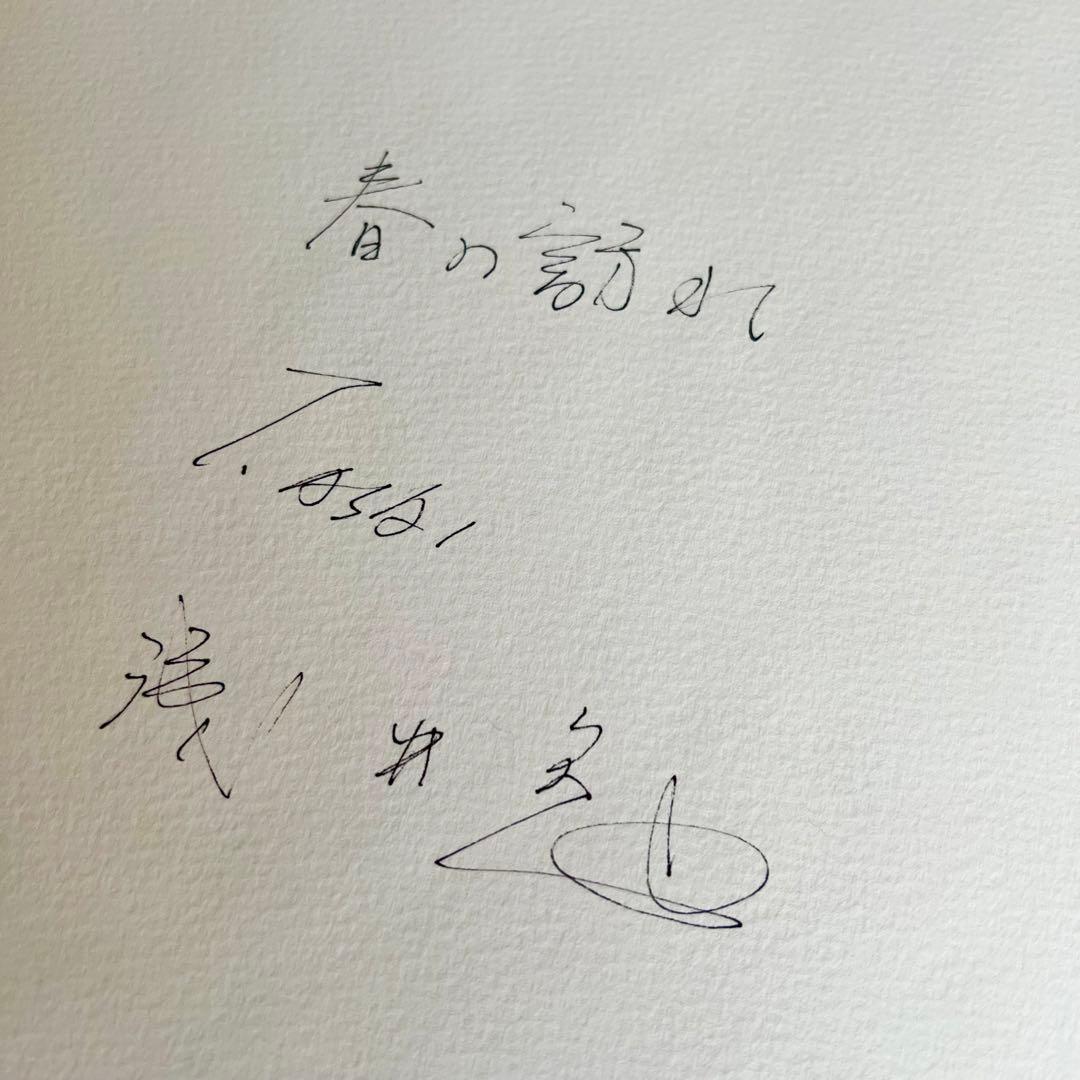 春の訪れ
T. Asai
浅井